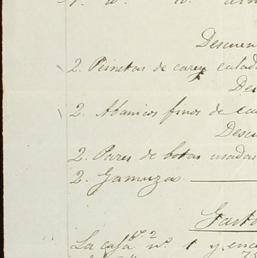 Descuen
2. Peinetas de carey calad
De
2. Abanicos finos de
Descu
2. Pares de botas usadas
2. Gamuza
Gasto
La caja nº 1 y enc